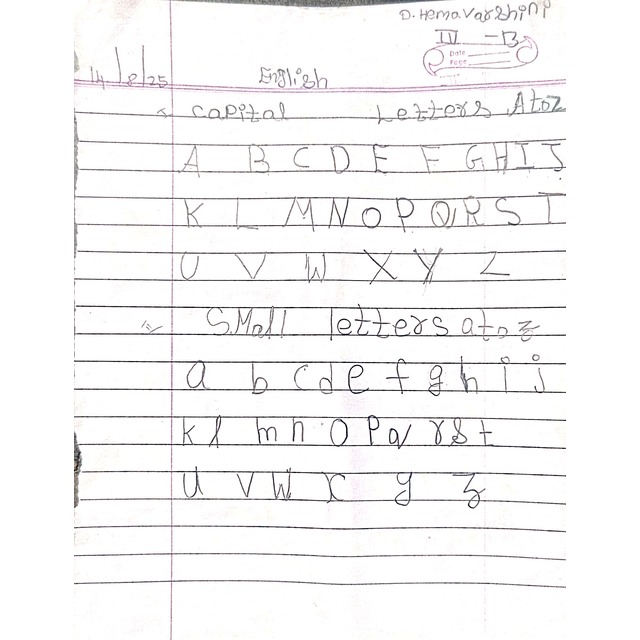 D. Hemavarshini
IV - B
Date
Page
14/8/25
English
Capital Letters A to Z
A B C D E F G H I J
K L M N O P Q R S T
U V W X Y Z
SMall letters a to z
a b c d e f g h i j
k l m n o p q r s t
u v w x y z